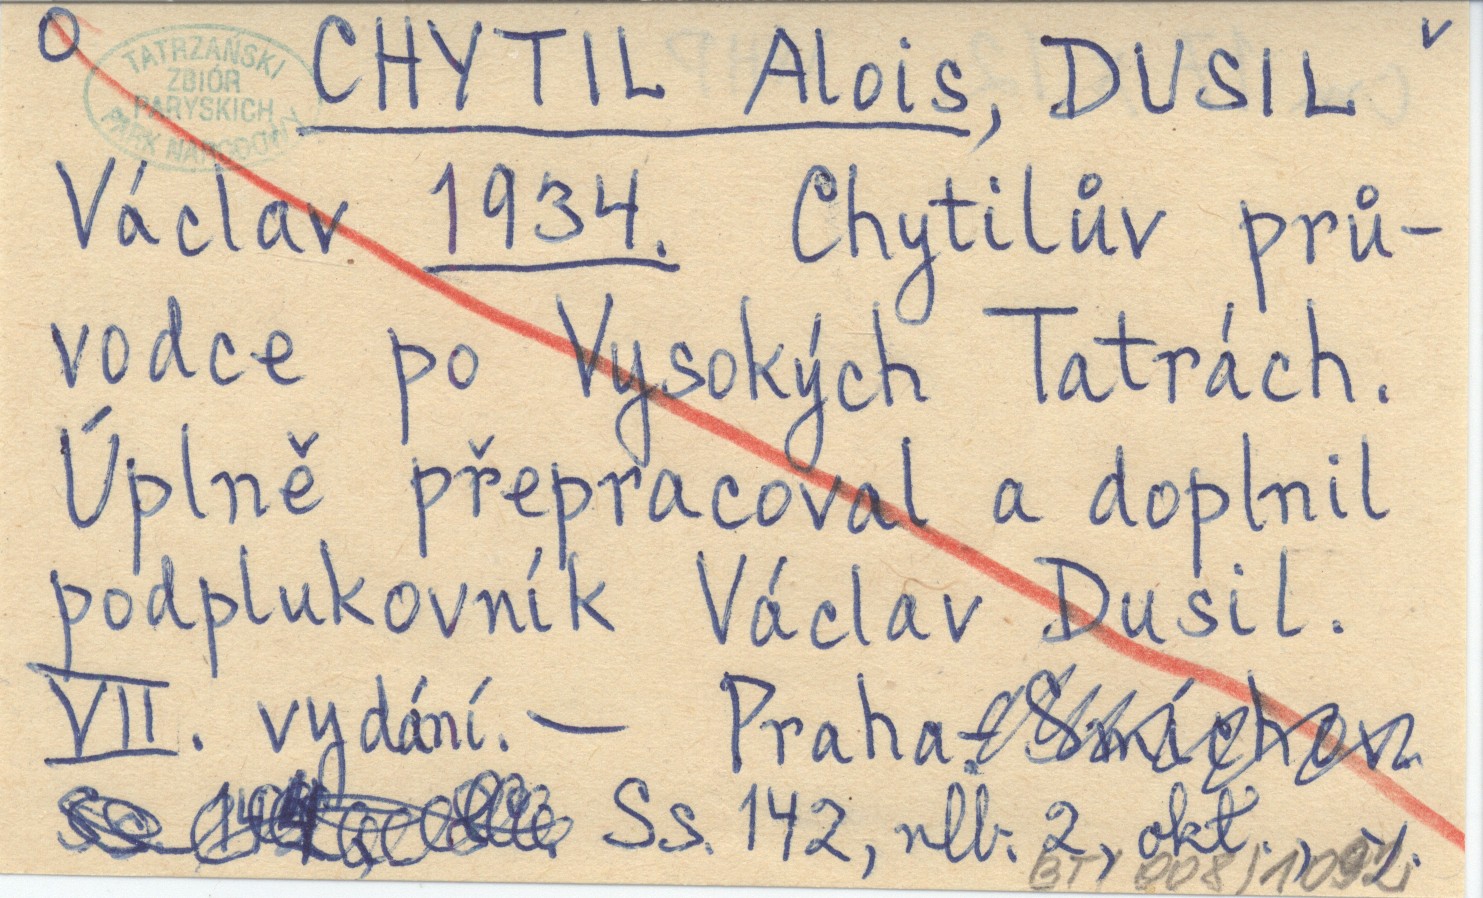 O
TATRZAŃSKI
ZBIÓR
PARYSKICH
PARK NARODOWY
CHYTIL Alois, DUSIL v
Václav 1934. Chytilův prů-
vodce po Vysokých Tatrách.
Úplně přepracoval a doplnil
podplukovník Václav Dusil.
VII. vydání. — Praha - Smíchov.
Ss. 142, nlb. 2, okł.,
BT/008/1092